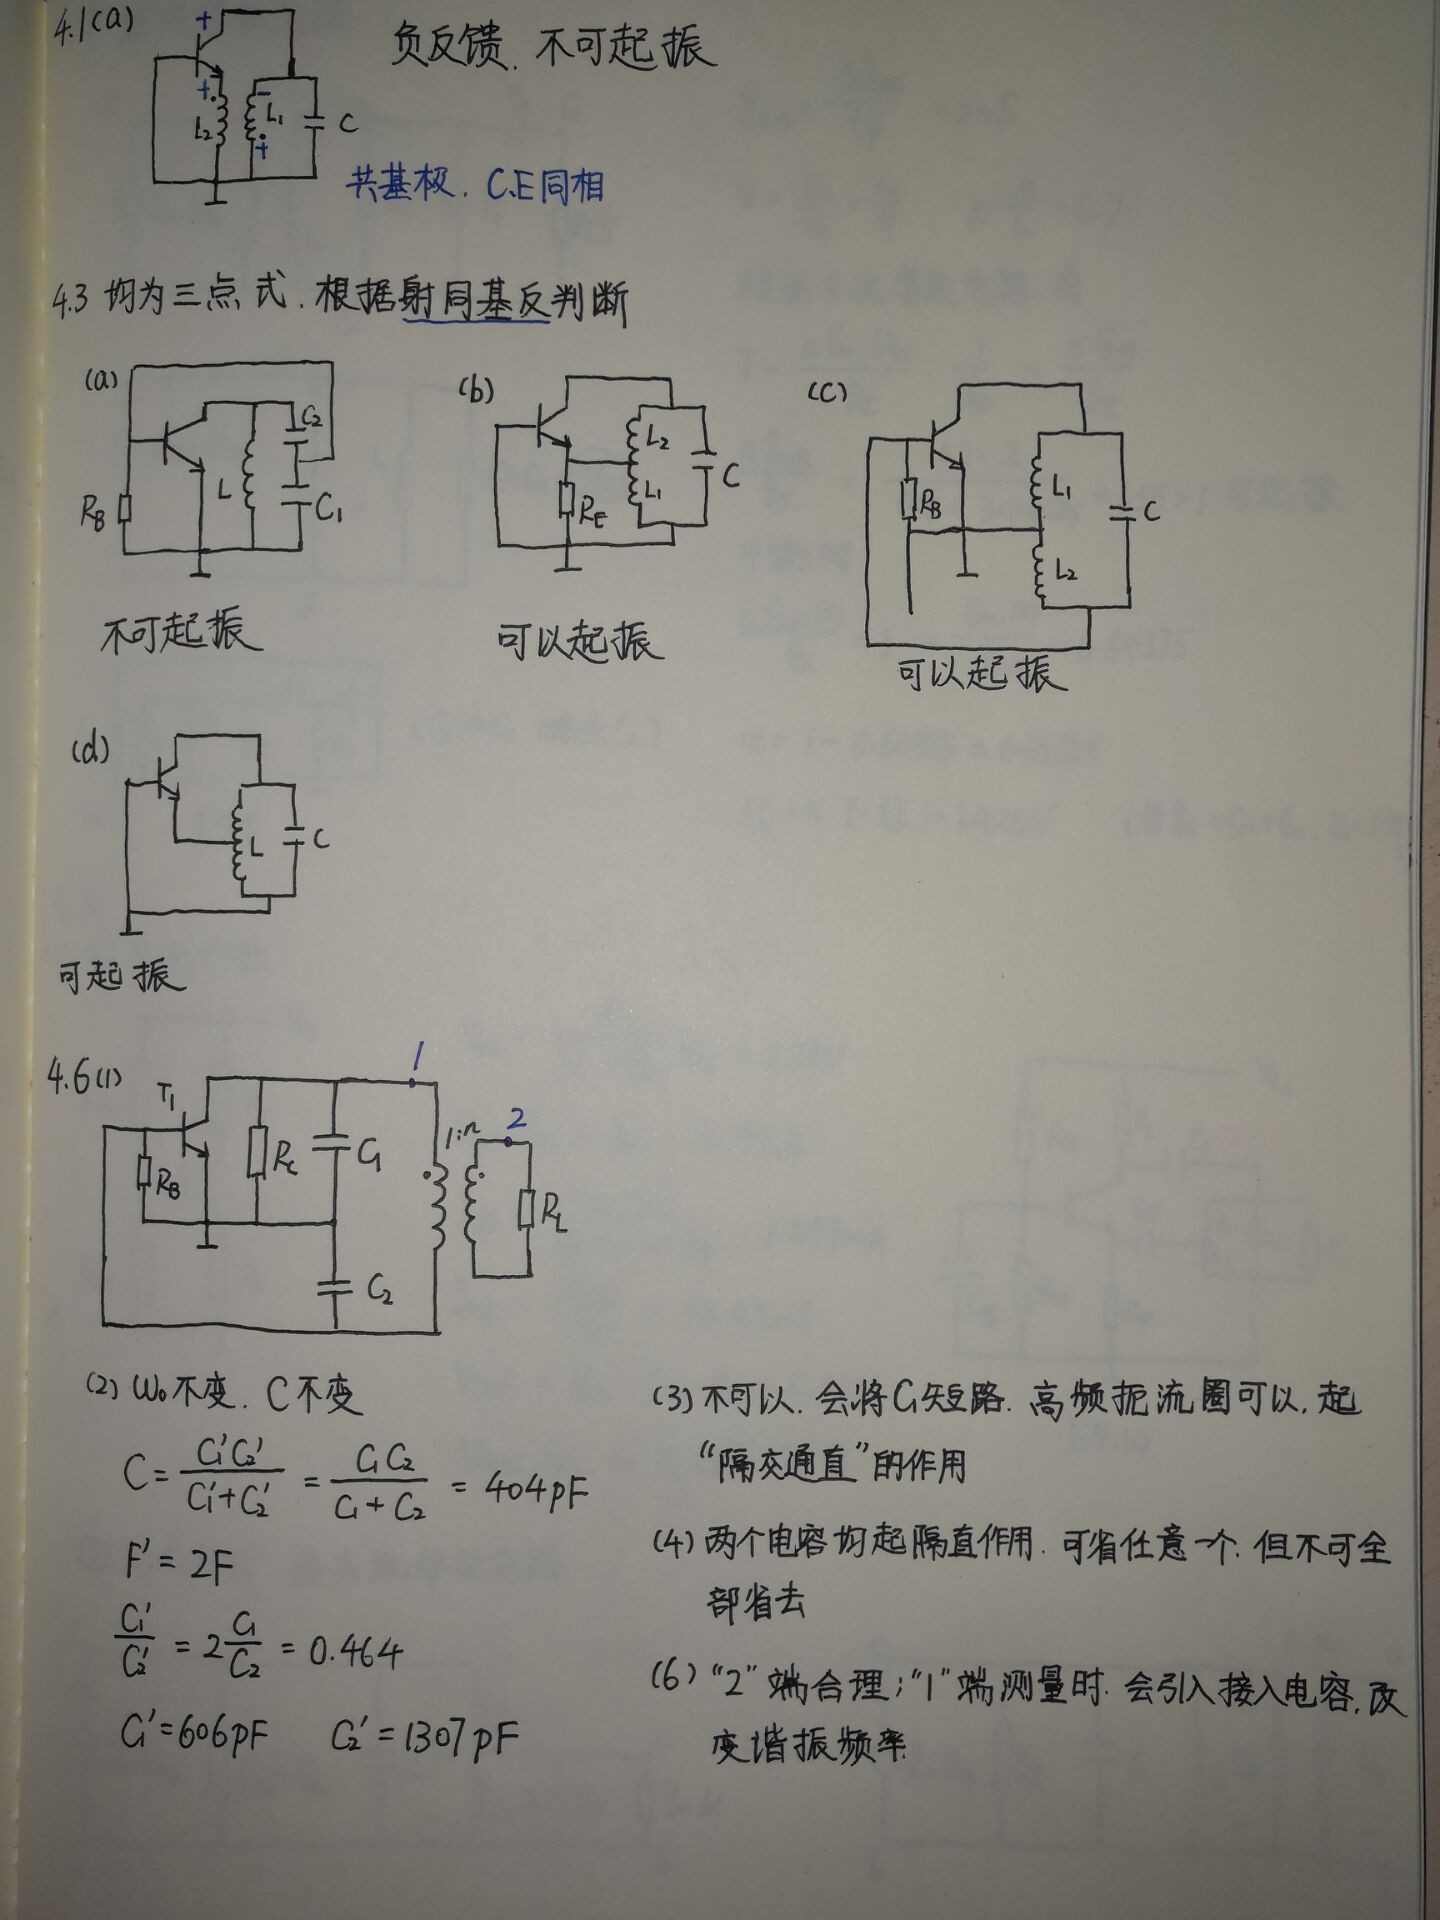 4.1(a)
负反馈. 不可起振
+
+
-
+
L₂
L₁
C
共基极. C、E同相
4.3 均为三点式. 根据射同基反判断
(a)
C₂
L
R_B
C₁
不可起振
(b)
L₂
L₁
C
R_E
可以起振
(c)
R_B
L₁
L₂
C
可以起振
(d)
L
C
可起振
4.6(1)
T₁
1
2
1:n
R_B
R_C
C₁
C₂
R_L
(2) ω₀不变. C不变
C = C₁'C₂' / (C₁'+C₂') = C₁C₂ / (C₁+C₂) = 404pF
F' = 2F
C₁'/C₂' = 2 C₁/C₂ = 0.464
C₁'=606pF C₂'=1307pF
(3) 不可以. 会将C₁短路. 高频扼流圈可以, 起
“隔交通直”的作用
(4) 两个电容均起隔直作用. 可省任意一个. 但不可全
部省去
(6) “2”端合理; “1”端测量时. 会引入接入电容, 改
变谐振频率.